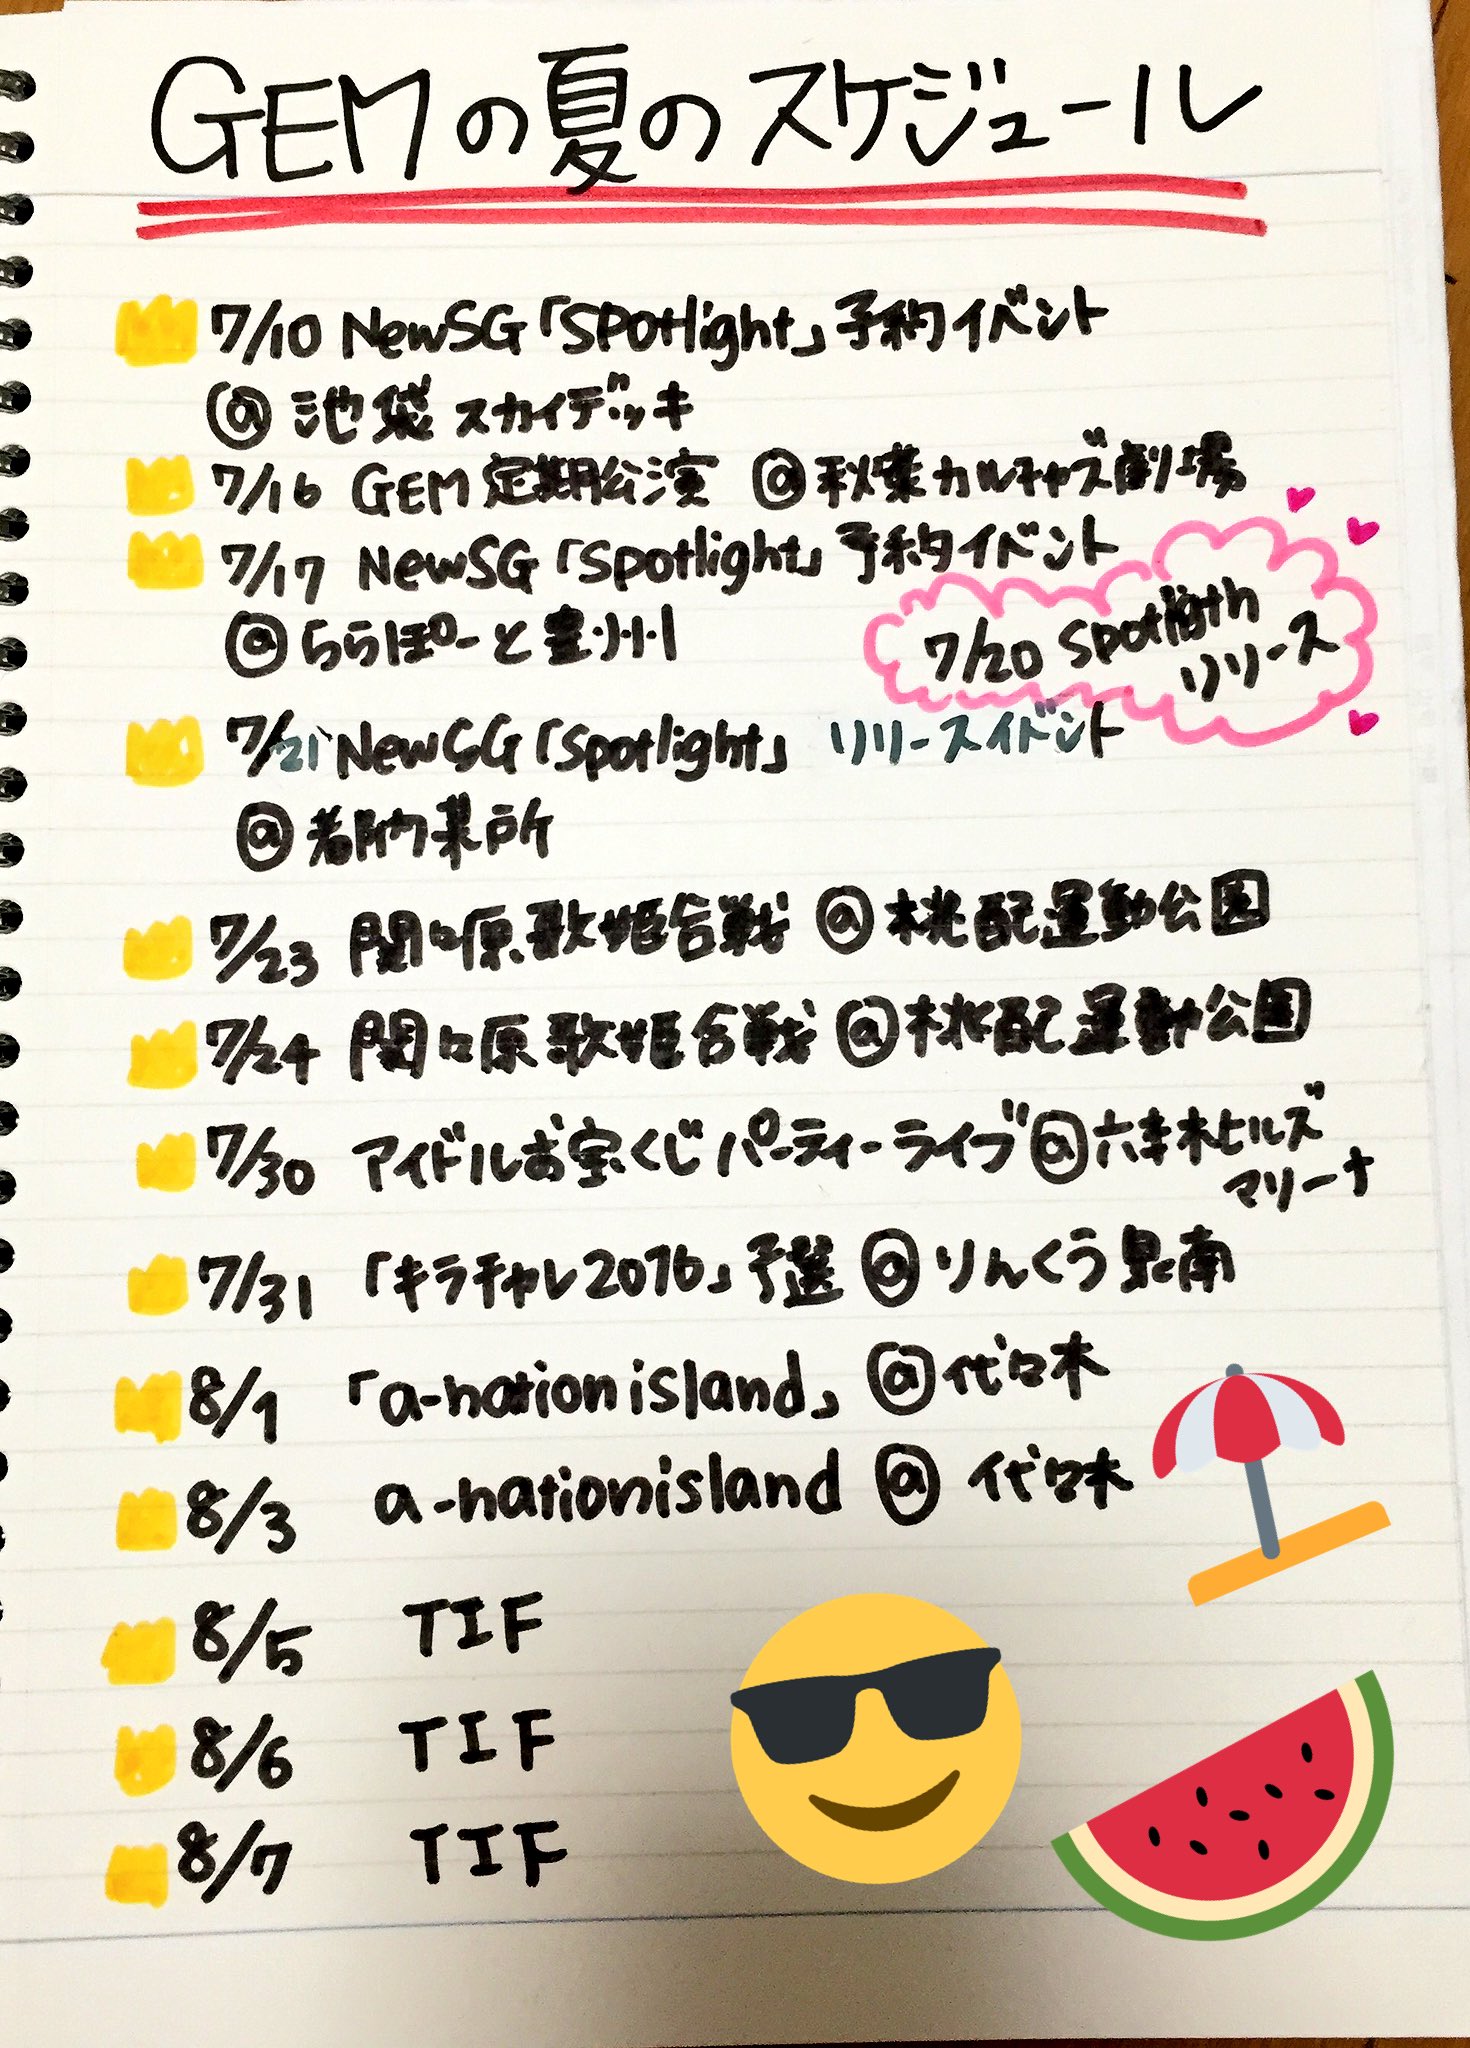 GEMの夏のスケジュール
7/10 NewSG「Spotlight」予約イベント
@池袋スカイデッキ
7/16 GEM定期公演 @秋葉カルチャズ劇場
7/17 NewSG「Spotlight」予約イベント
@ららぽーと豊洲
7/20 Spotligth
リリース
7/21 NewSG「Spotlight」 リリースイベント
@都内某所
7/23 関ヶ原歌姫合戦 @桃配運動公園
7/24 関ヶ原歌姫合戦 @桃配運動公園
7/30 アイドルお宝くじパーティーライブ@六本木ヒルズ
マリーナ
7/31 「キラチャレ2016」予選 @りんくう泉南
8/1 「a-nation island」 @代々木
8/3 a-nation island @ 代々木
8/5 TIF
8/6 TIF
8/7 TIF